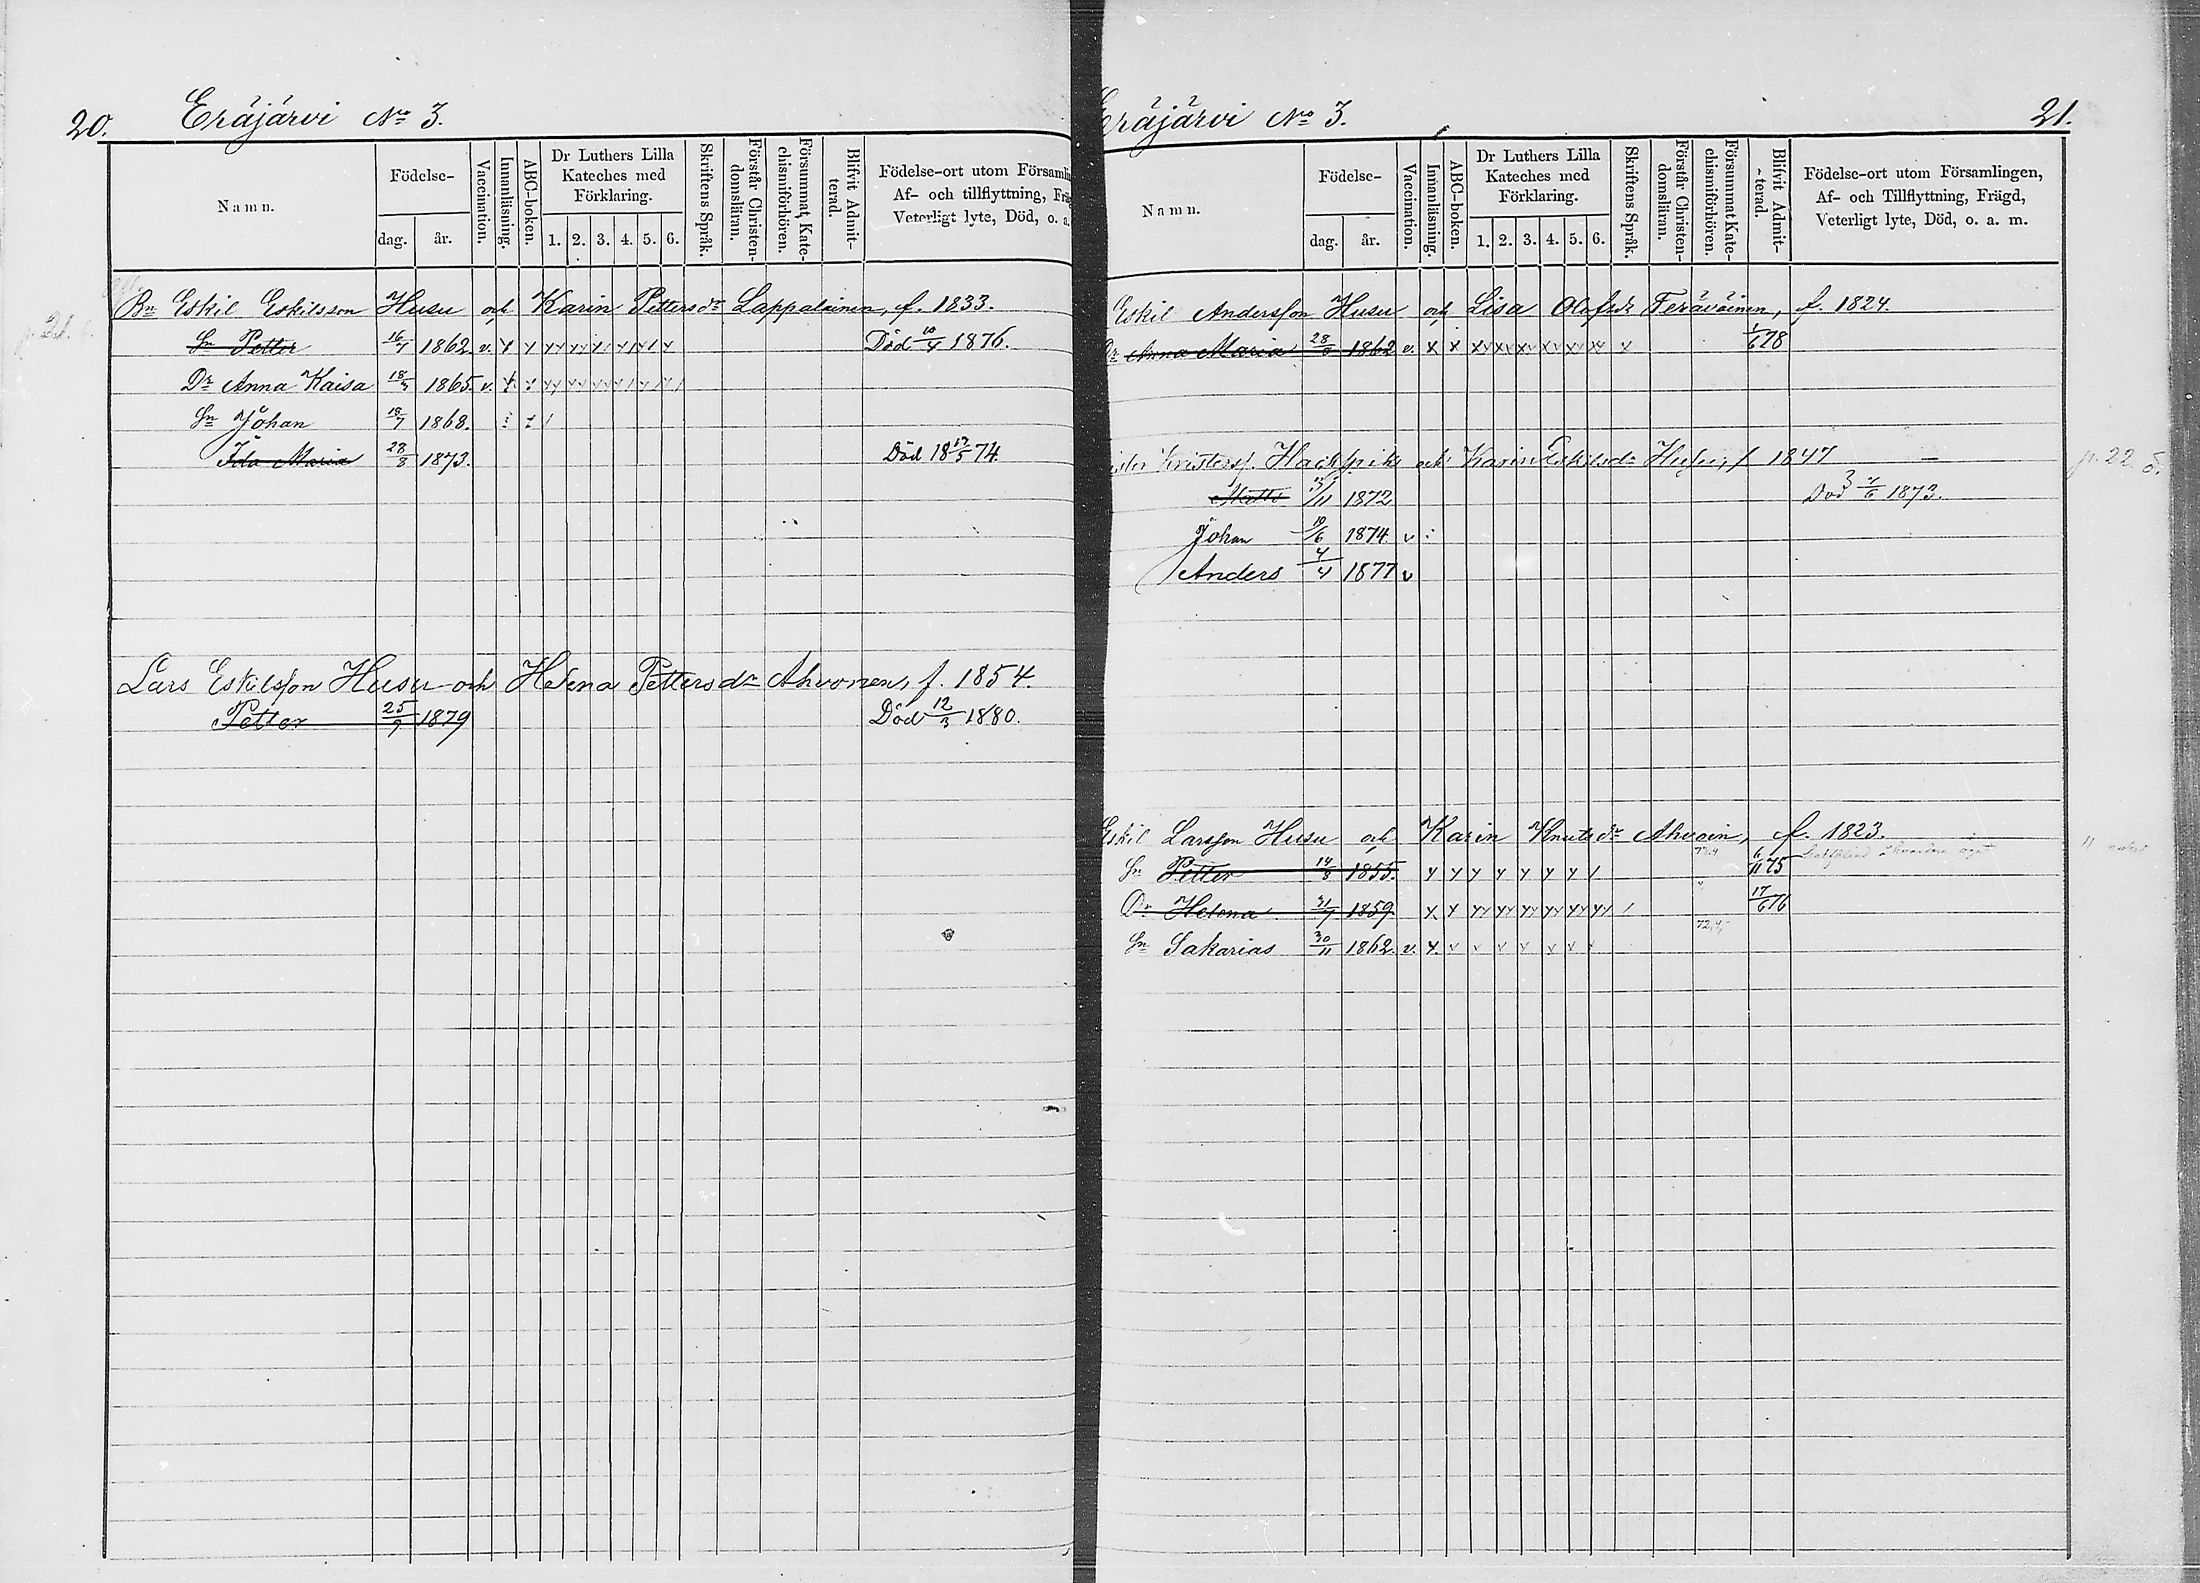 20. Eräjärvi No 3.
Namn. Födelse- dag. år. Vaccination. Innanläsning. ABC-boken. Dr Luthers Lilla Kateches med Förklaring. 1. 2. 3. 4. 5. 6. Skriftens Språk. Förstår Christen-domsläran. Försummat Kate-chismiförhören. Blifvit Admit-terad. Födelse-ort utom Församlin Af- och tillflyttning, Fräg Veterligt lyte, Död, o. a.
Br Eskil Eskilsson Husu och Karin Pettersdr Lappalainen, f. 1833.
Sn Petter 16/7 1862. v. Död 10/4 1876.
Dr Anna Kaisa 18/3 1865. v.
Sn Johan 18/7 1868.
Ida Maria 28/8 1873. Död 18 17/5 74.
Lars Eskilsson Husu och Helena Pettersdr Ahvonen, f. 1854.
Petter 25/9 1879 Död 12/3 1880.
Eräjärvi No 3. 21.
Namn. Födelse- dag. år. Vaccination. Innanläsning. ABC-boken. Dr Luthers Lilla Kateches med Förklaring. 1. 2. 3. 4. 5. 6. Skriftens Språk. Förstår Christen-domsläran. Försummat Kate-chismiförhören. Blifvit Admit-terad. Födelse-ort utom Församlingen, Af- och Tillflyttning, Frägd, Veterligt lyte, Död, o. a. m.
Eskil Andersson Husu och Lisa Olofsdr Teräväinen, f. 1824.
Dr Anna Maria 1862 v. 78
Kristersf. och Karin Eskilsdr Husu, f 1847
p. 22.
1872 Död 1873.
Johan 19/6 1874 v
Anders 4/4 1877 v
Eskil Larsson Husu och Karin Knutsdr Ahvoin, f. 1823.
Sn Petter 14/8 1855. 6/11 75
Dr Helena 31/7 1859 17/6 76
Sn Sakarias 30/11 1862. v.